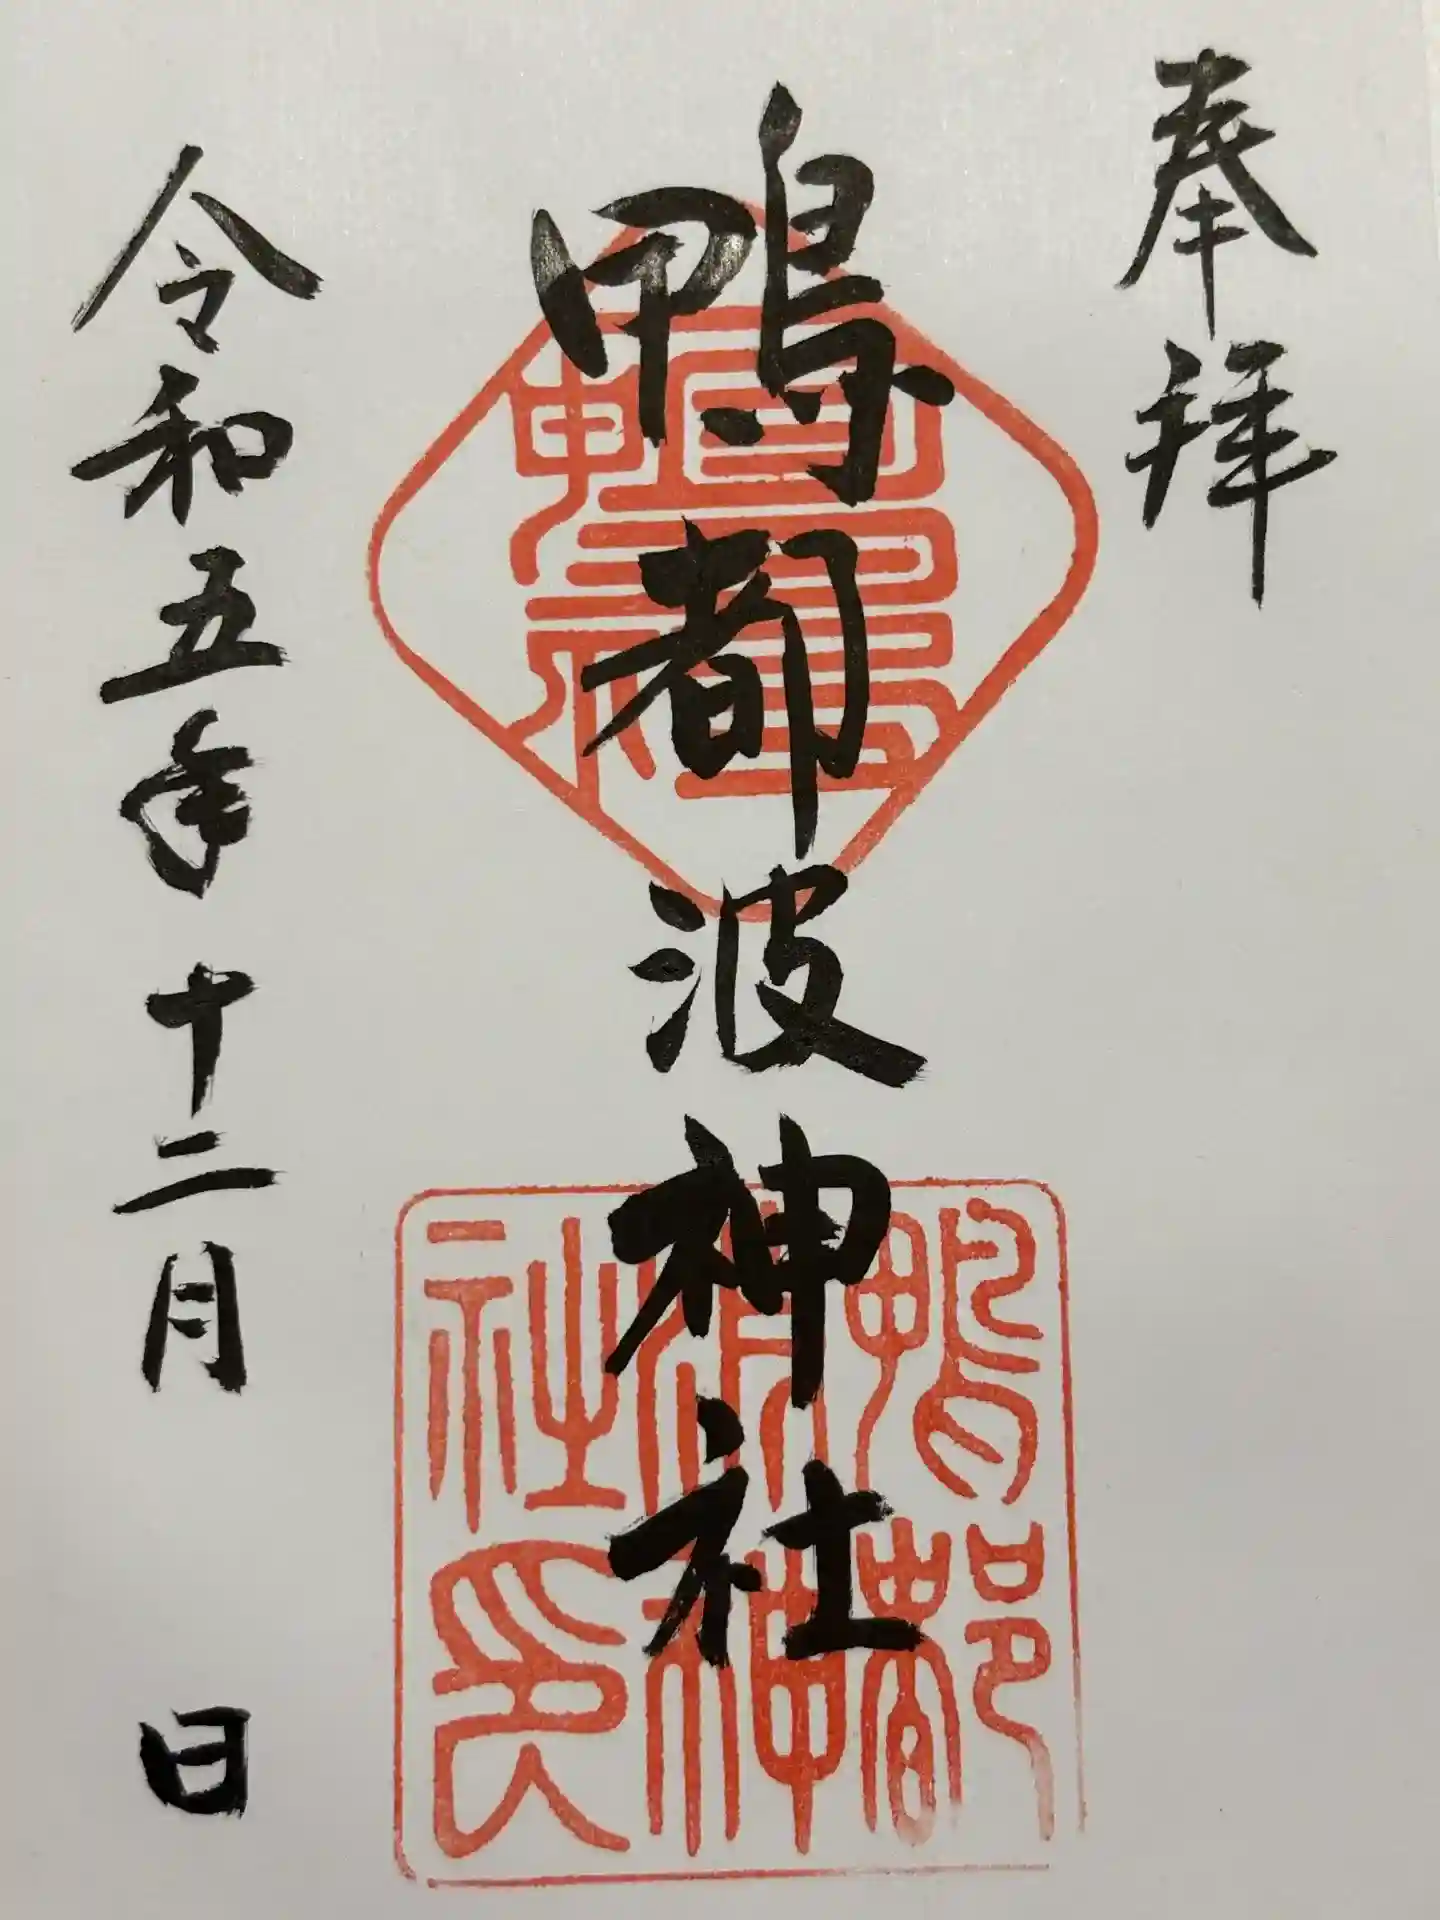 奉拝
鴨都波神社
令和五年十二月　日
鴨都
波神
社印